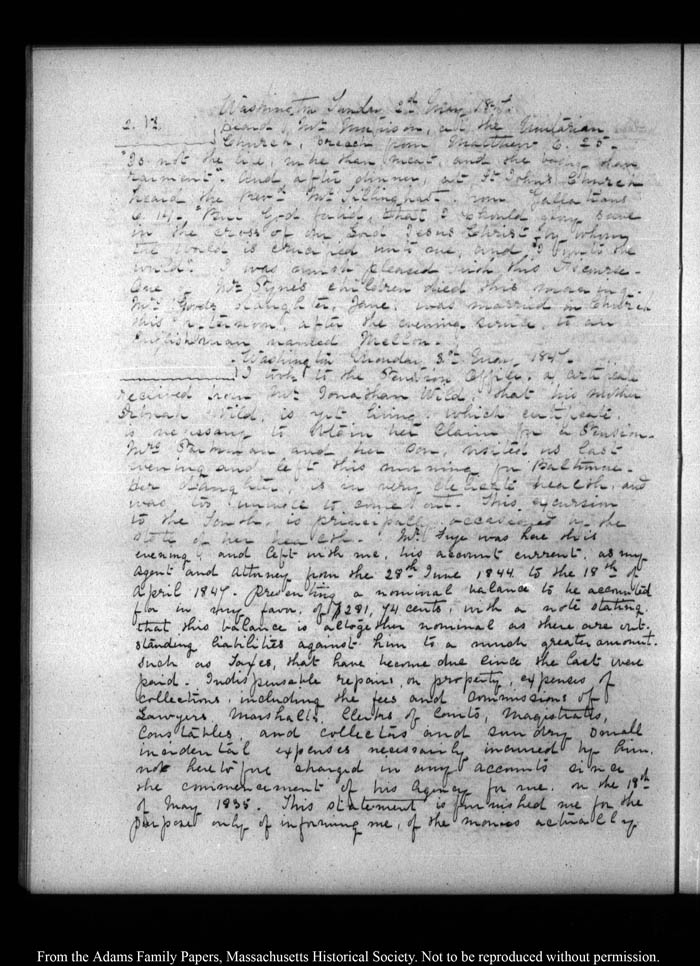 Washington Sunday 2d May 1847.
2. V.
Heard Mr. at the Unitarian
Church, preach from Matthew 6. 25.
"Is not the life, more than meat, and the body than
raiment". And after dinner, at St John's Church
heard the Revd. Mr. Tillinghast. from Galatians
6. 14. "But God forbid, that I should glory save
in the cross of our Lord Jesus Christ, by whom
the world is crucified unto me, and I unto the
world". I was much pleased with this
One of Mr. children died this morning.
Mrs. daughter, Jane, was married in Church
this afternoon, after the evening service, to an
Englishman named Mellon.
Washington Monday 3d May, 1847.
I took to the Pension Office, a certificate
received from Mr. Jonathan Wild, that his mother
Wild, is yet living. which certificate,
is necessary to obtain her claim for a Pension.
Mrs. and her Son, visited us last
evening and left this morning for Baltimore.
Her daughter, is in very delicate health, and
was too unwell to come out. This excursion
to the South, is principally occasioned by the
state of her health. Mr. Frye was here this
evening and left with me, his account current, as my
agent and attorney from the 28th June 1844 to the 18th of
April 1847. presenting a nominal balance to be accounted
for in my favor, of $281,74 cents, with a note stating
that this balance is altogether nominal as there are out-
standing liabilities against him to a much greater amount.
Such as Taxes, that have become due since the last were
paid. Indispensable repairs, on property, expenses of
collections, including the fees and commissions of
Lawyers, Marshalls, Clerks of Courts, Magistrates,
Constables, and collectors and sundry small
incidental expenses necessarily incurred by him,
not heretofore charged in any accounts since
the commencement of his Agency for me. on the 18th
of May 1835. This statement is furnished me for the
purpose only of informing me, of the monies actually
From the Adams Family Papers, Massachusetts Historical Society. Not to be reproduced without permission.